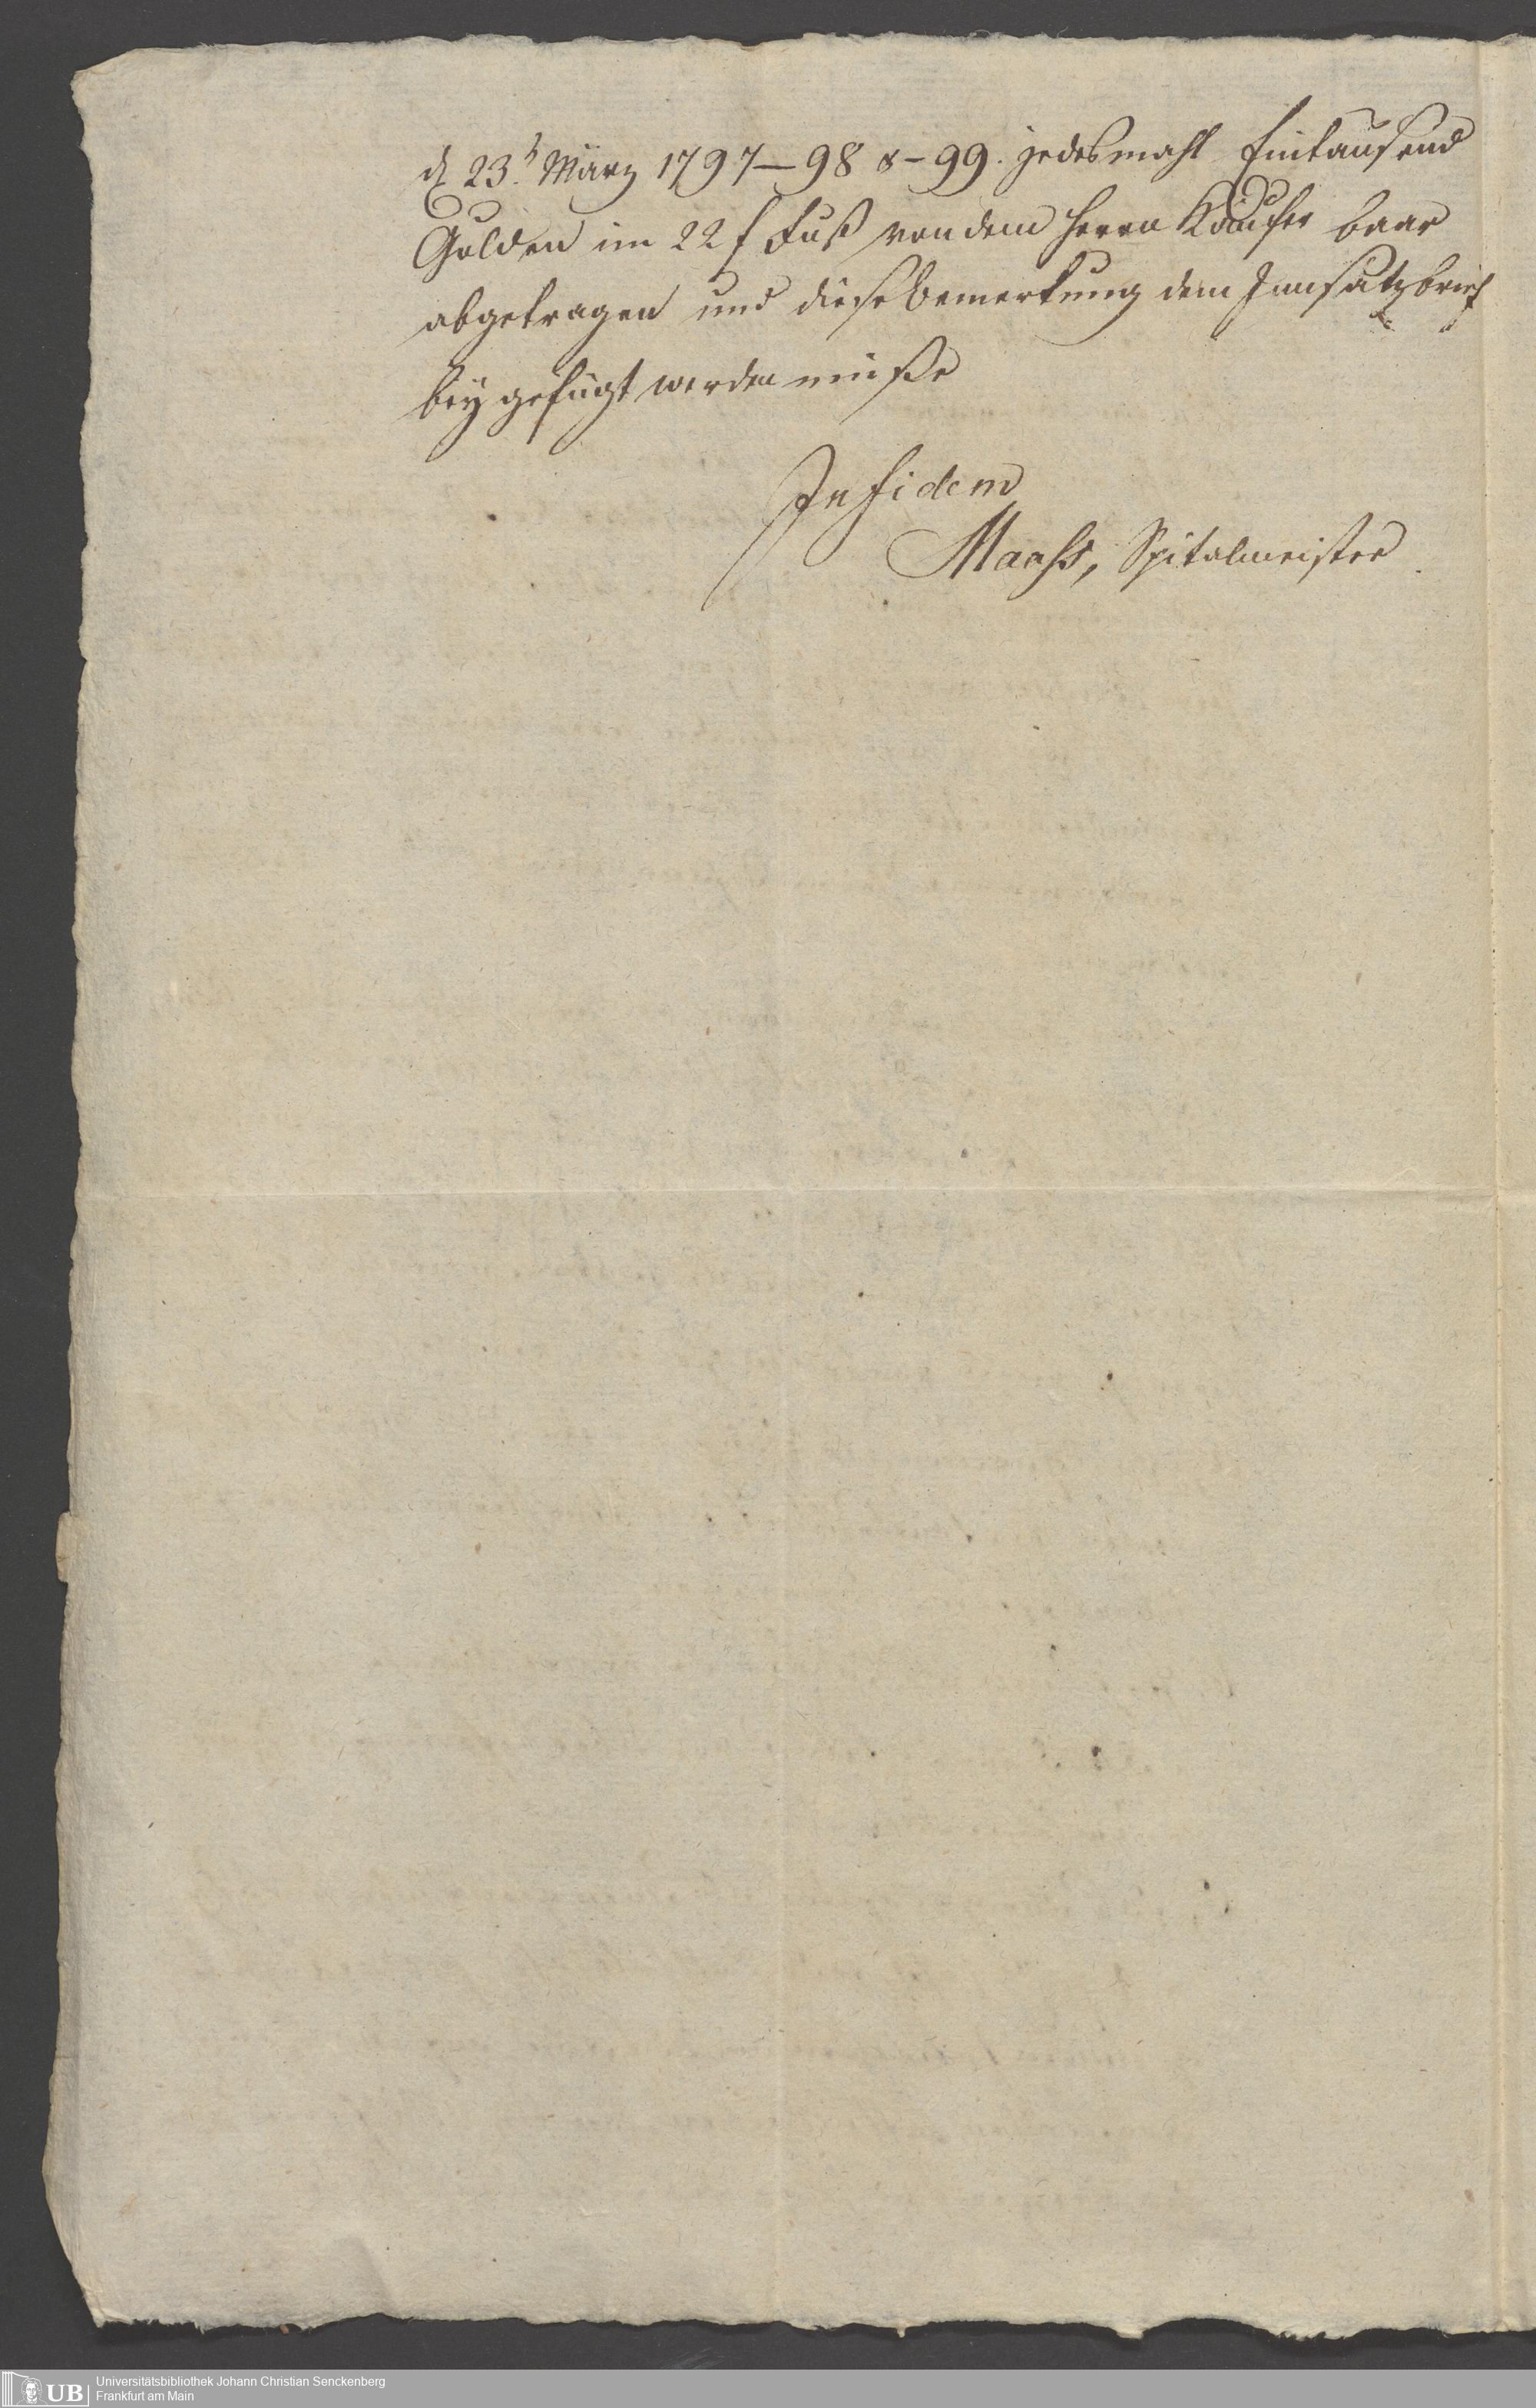 d. 23.t März 1797 – 98 & – 99. jedesmahl Eintausend
Gulden im 22 f Fuß von dem Herrn Käufer baar
abgetragen und diese Bemerkung dem Innsatzbrief
beygefügt werden müße
In fidem
Maaß, Spitalmeister
UB
Universitätsbibliothek Johann Christian Senckenberg
Frankfurt am Main